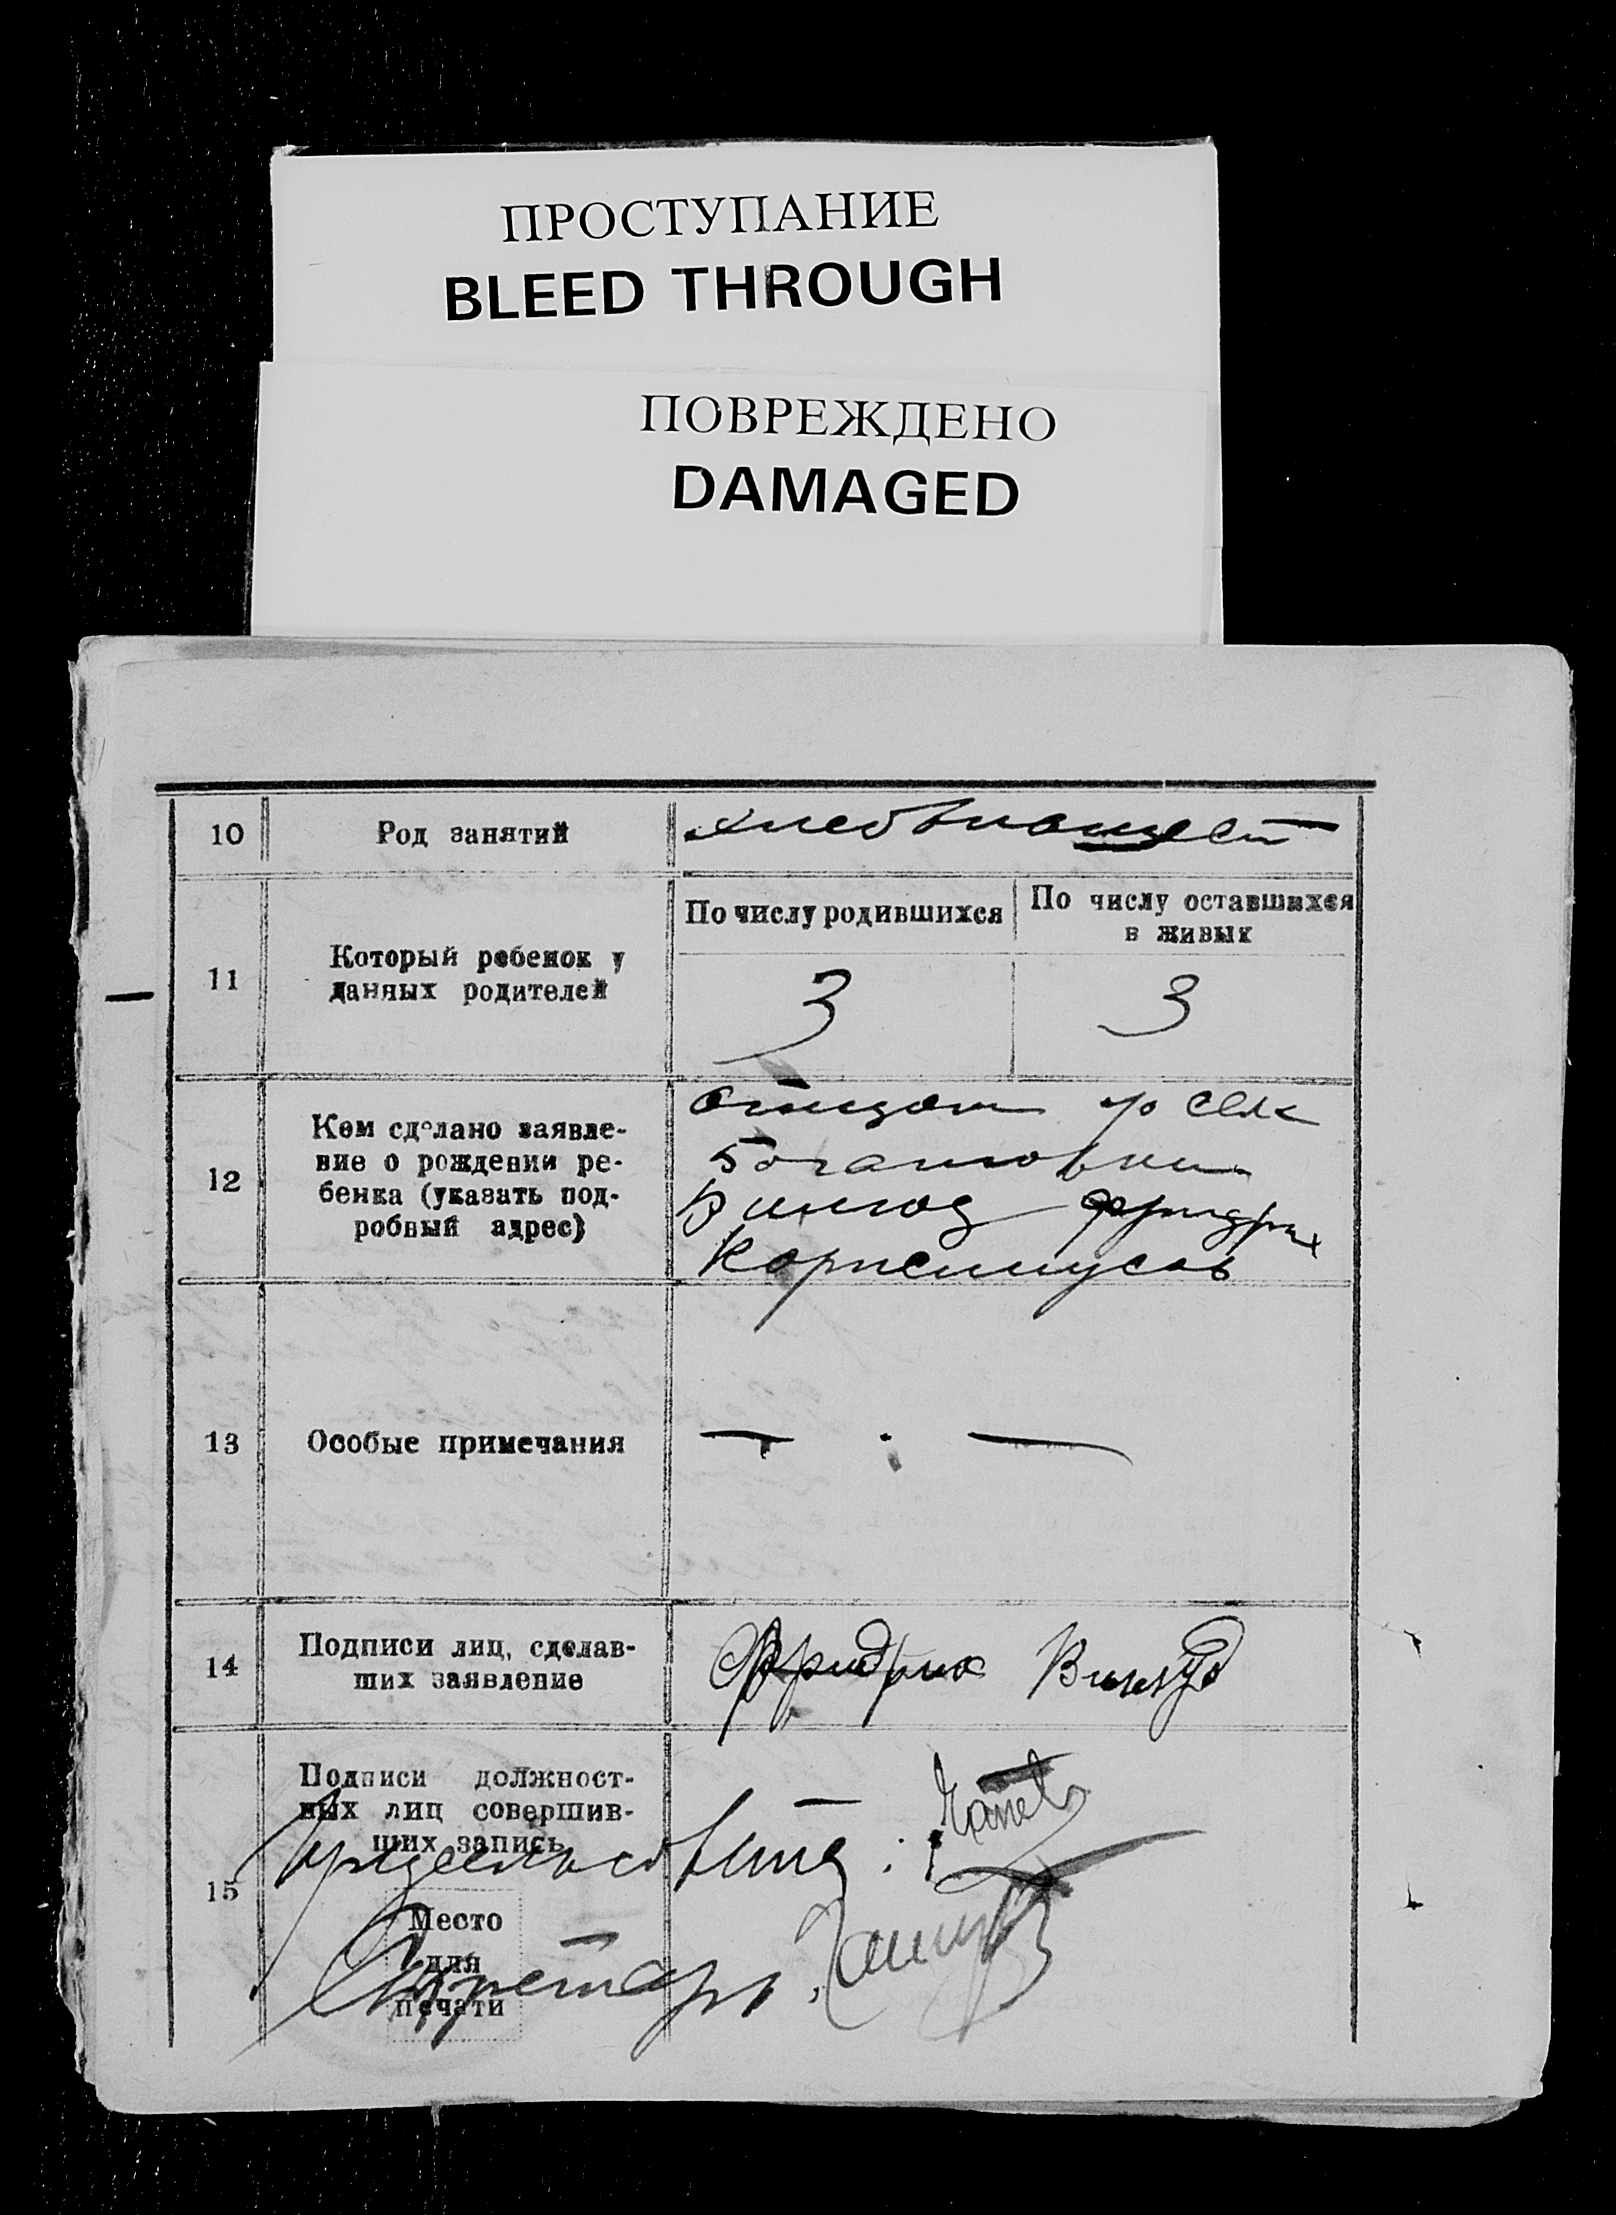 ПРОСТУПАНИЕ
BLEED THROUGH
ПОВРЕЖДЕНО
DAMAGED
10 Род занятий
11 Который ребенок у данных родителей
По числу родившихся
По числу оставшихся
в живых
3 3
12 Кем сделано заявле-
ние о рождении ре-
бенка (указать под-
робный адрес)
отцом
Фридрих
13 Особые примечания
— . —
14 Подписи лиц, сделав-
ших заявление
Фридрих
15 Подписи должност-
ных лиц совершив-
ших запись
Место
для
печати
Секретарь